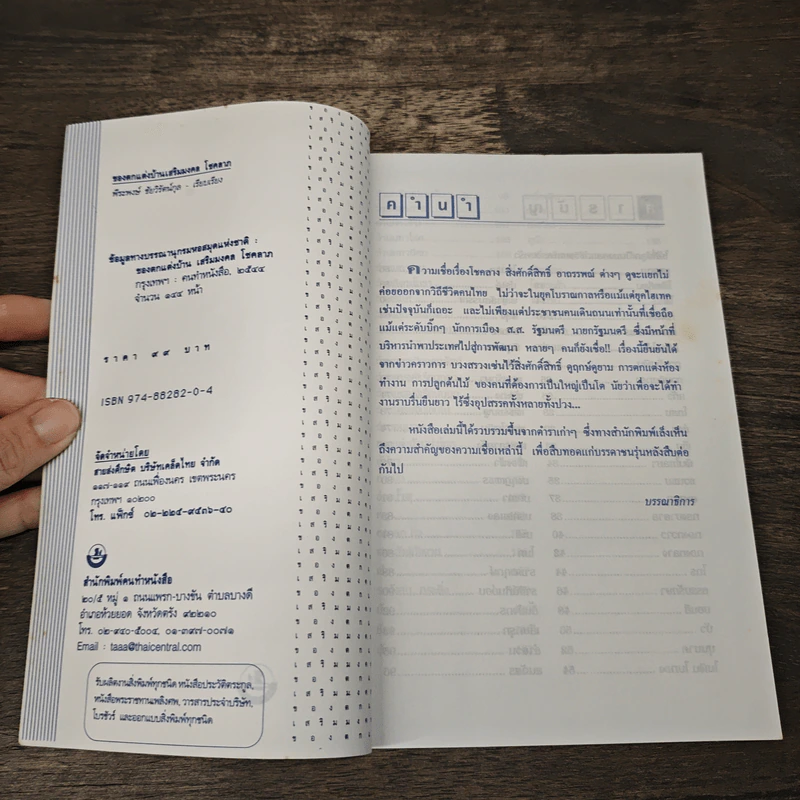 ของตกแต่งบ้านเสริมมงคล โชคลาภ
พีระพงษ์ ชัยวิรัตน์กูล - เรียบเรียง
ข้อมูลทางบรรณานุกรมหอสมุดแห่งชาติ :
ของตกแต่งบ้าน เสริมมงคล โชคลาภ
กรุงเทพฯ : คนทำหนังสือ, ๒๕๔๔
จำนวน ๑๔๔ หน้า
ราคา ๙๙ บาท
ISBN 974-88282-0-4
จัดจำหน่ายโดย
สายส่งศึกษิต บริษัทเคล็ดไทย จำกัด
๑๑๗-๑๑๙ ถนนเฟื่องนคร เขตพระนคร
กรุงเทพฯ ๑๐๒๐๐
โทร. แฟ็กซ์ ๐๒-๒๒๕-๙๕๓๖-๔๐
สำนักพิมพ์คนทำหนังสือ
๒๐/๕ หมู่ ๑ ถนนแพรก-บางขัน ตำบลบางดี
อำเภอห้วยยอด จังหวัดตรัง ๙๒๒๑๐
โทร. ๐๒-๙๔๐-๕๐๐๔, ๐๑-๓๙๗-๐๐๗๑
Email : taaa@thaicentral.com
รับผลิตงานสิ่งพิมพ์ทุกชนิด หนังสือประวัติตระกูล,
หนังสือพระราชทานเพลิงศพ, วารสารประจำบริษัท,
โบรชัวร์ และออกแบบสิ่งพิมพ์ทุกชนิด
คำนำ
ความเชื่อเรื่องโชคลาง สิ่งศักดิ์สิทธิ์ อาถรรพณ์ ต่างๆ ดูจะแยกไม่
ค่อยออกจากวิถีชีวิตคนไทย ไม่ว่าจะในยุคโบราณกาลหรือแม้แต่ยุคไฮเทค
เช่นปัจจุบันก็เถอะ และไม่เพียงแต่ประชาชนคนเดินถนนเท่านั้นที่เชื่อถือ
แม้แต่ระดับบิ๊กๆ นักการเมือง ส.ส. รัฐมนตรี นายกรัฐมนตรี ซึ่งมีหน้าที่
บริหารนำพาประเทศไปสู่การพัฒนา หลายๆ คนก็ยังเชื่อ!! เรื่องนี้ยืนยันได้
จากข่าวคราวการ บวงสรวงเซ่นไหว้สิ่งศักดิ์สิทธิ์ ดูฤกษ์ดูยาม การตกแต่งห้อง
ทำงาน การปลูกต้นไม้ ของคนที่ต้องการเป็นใหญ่เป็นโต นัยว่าเพื่อจะได้ทำ
งานราบรื่นยืนยาว ไร้ซึ่งอุปสรรคทั้งหลายทั้งปวง...
หนังสือเล่มนี้ได้รวบรวมขึ้นจากตำราเก่าๆ ซึ่งทางสำนักพิมพ์เล็งเห็น
ถึงความสำคัญของความเชื่อเหล่านี้ เพื่อสืบทอดแก่บรรดาชนรุ่นหลังสืบต่อ
กันไป
บรรณาธิการ